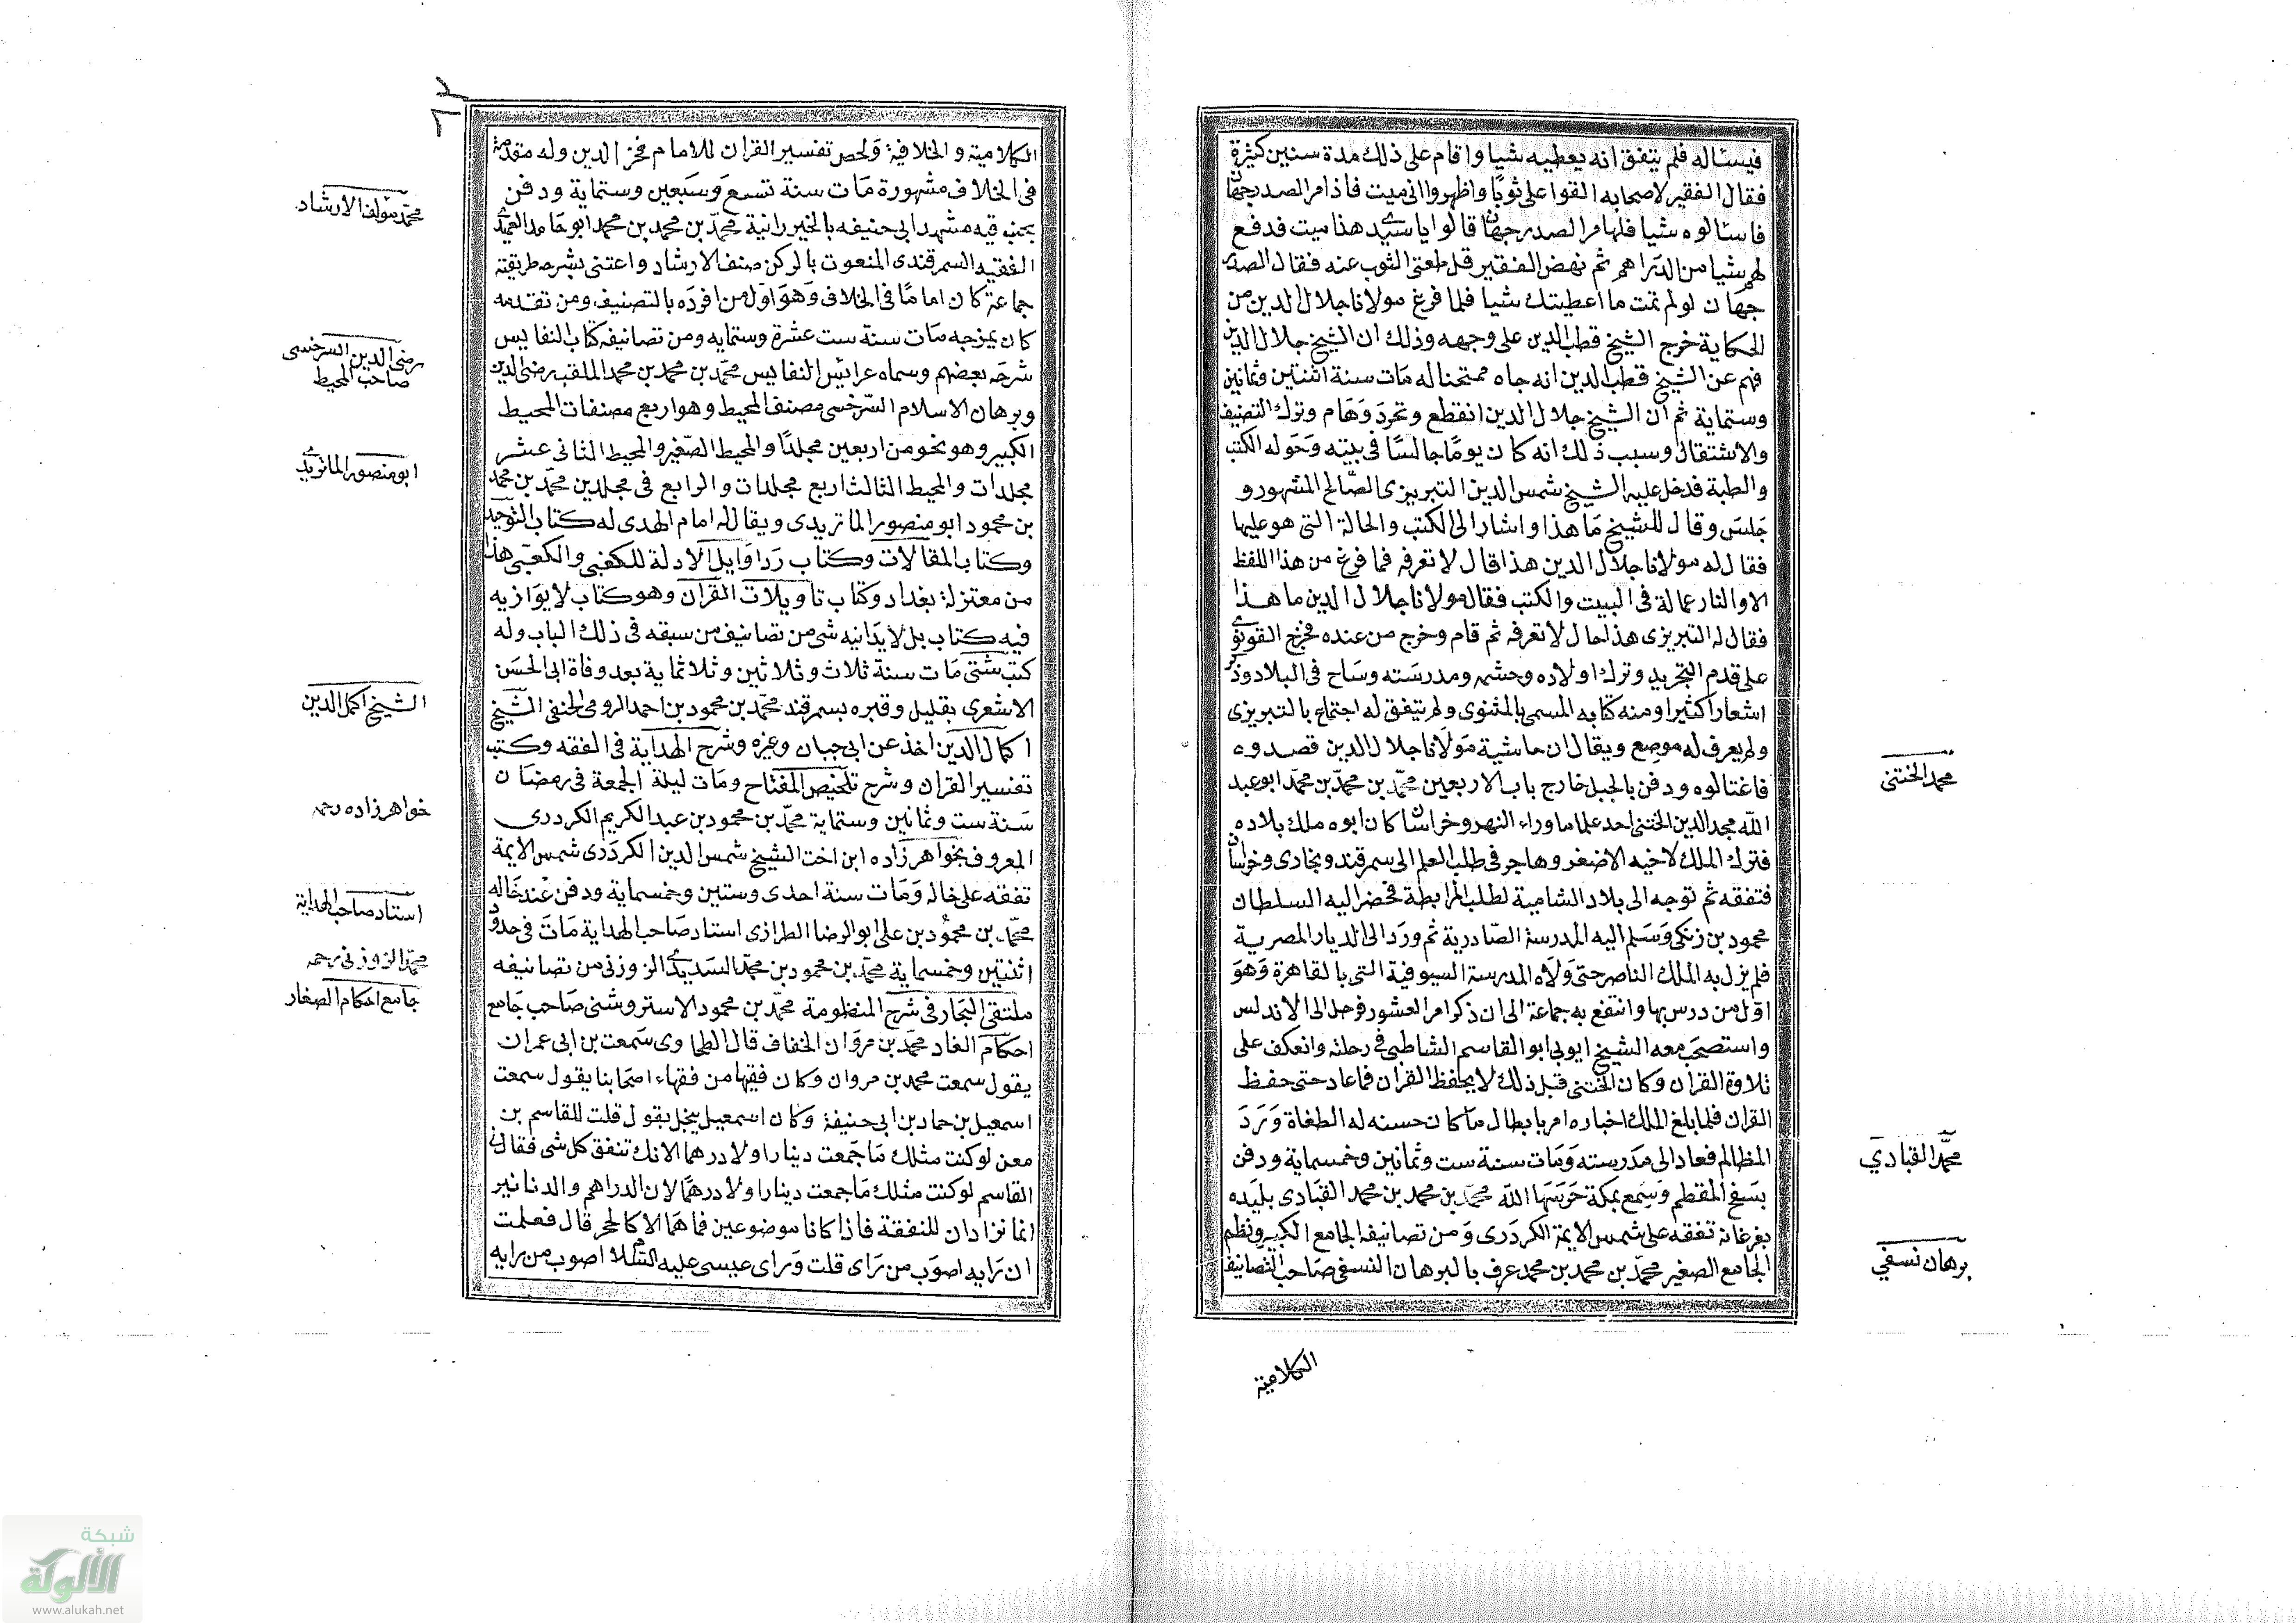 فيساله فلم يتفق انه يعطيه شيا واقام على ذلك مدة سنين كثيرة
فقال الفقير لاصحابه القوا على ثوبا واظهروا اني ميت فاذا مر الصدر جهان
فاسالوه شيا فلما مر الصدر جهان قالوا يا سيدي هذا ميت فدفع
لهم شيا من الدراهم ثم نهض الفقير والقى الثوب عنه فقال الصدر
جهان لو لم تمت ما اعطيتك شيا فلما فرغ مولانا جلال الدين من
الحكاية خرج الشيخ قطب الدين على وجهه وذلك ان الشيخ جلال الدين
فهم عن الشيخ قطب الدين انه جاه ممتحنا له مات سنة اثنتين وثمانين
وستماية ثم ان الشيخ جلال الدين انقطع وتجرد وهام وترك التصنيف
والاشتغال وسبب ذلك انه كان يوما جالسا في بيته وحوله الكتب
والطبة فدخل عليه الشيخ شمس الدين التبريزى الصالح المشهور و
جلس وقال للشيخ ما هذا واشار الى الكتب والحالة التي هو عليها
فقال له مولانا جلال الدين هذا قال لا تعرفه فما فرغ من هذا اللفظ
الا والنار عمالة في البيت والكتب فقال مولانا جلال الدين ما هذا
فقال له التبريزى هذا حال لا تعرفه ثم قام وخرج من عنده فخرج القونوي
على قدم التجريد وترك اولاده وحشمه ومدرسته وساح في البلاد وذكر
اشعارا كثيرا ومنه كتابه المسمى بالمثنوى ولم يتفق له اجتماع بالتبريزى
ولم يعرف له موضع ويقال ان حاشية مولانا جلال الدين قصدوه
فاغتالوه ودفن بالجبل خارج باب الاربعين محمد بن محمد بن محمد ابو عبد
الله مجد الدين الختنى احد علما ما وراء النهر وخراسان كان ابوه ملك بلاده
فترك الملك لاخيه الاصغر وهاجر في طلب العلم الى سمرقند وبخارى وخراسان
فتفقه ثم توجه الى بلاد الشامية لطلب المرابطة فحضر اليه السلطان
محمود بن زنكى وسلم اليه المدرسة الصادرية ثم ورد الى الديار المصرية
فلم يزل به الملك الناصر حتى ولاه المدرسة السيوفية التي بالقاهرة وهو
اول من درس بها وانتفع به جماعة الى ان ذكر امر العشور فرحل الى الاندلس
واستصحب معه الشيخ ابو القاسم الشاطبى في رحلته وانعكف على
تلاوة القران وكان الختنى قبل ذلك لا يحفظ القران فما عاد حتى حفظ
القران فلما بلغ الملك اخباره امر بابطال ما كان حسنه له الطغاة ورد
المظالم فعاد الى مدرسته ومات سنة ست وثمانين وخمسماية ودفن
بسفح المقطم وسمع بمكة حرسها الله محمد بن محمد بن محمد القبادى بليده
بفرغانه تفقه على شمس الايمة الكردرى ومن تصانيفه الجامع الكبير ونظم
الجامع الصغير محمد بن محمد بن محمد عرف بالبرهان النسفى صاحب التصانيف
الكلامية
محمد الختنى
محمد القبادي
برهان نسفي
الكلامية والخلافية ولخص تفسير القران للامام فخر الدين وله مقدمة
في الخلاف مشهورة مات سنة تسع وسبعين وستماية ودفن
بجنب قبه مشهد ابي حنيفه بالخيزرانية محمد بن محمد بن محمد ابو حامد العميدى
الفقيه السمرقندى المنعوت بالركن صنف الارشاد واعتنى بشرحه طريقته
جماعة كان اماما في الخلاف وهو اول من افرده بالتصنيف ومن تقدمه
كان يمزجه مات سنة ست عشرة وستمايه ومن تصانيفه كتاب النفايس
شرحه بعضهم وسماه عرائس النفايس محمد بن محمد بن محمد الملقب رضى الدين
وبرهان الاسلام السرخسى مصنف المحيط وهو اربع مصنفات المحيط
الكبير وهو نحو من اربعين مجلدا والمحيط الصغير والمحيط الثاني عشر
مجلدات والمحيط الثالث اربع مجلدات والرابع في مجلدين محمد بن محمد
بن محمود ابو منصور الماتريدى ويقال له امام الهدى له كتاب التوحيد
وكتاب المقالات وكتاب رد اوايل الادلة للكعبي والكعبي هذا
من معتزلة بغداد وكتاب تاويلات القران وهو كتاب لا يوازيه
فيه كتاب بل لا يدانيه شى من تصانيف من سبقه في ذلك الباب وله
كتب شتى مات سنة ثلاث وثلاثين وثلاثماية بعد وفاة ابي الحسن
الاشعرى بقليل وقبره بسمرقند محمد بن محمود بن احمد الرومى الحنفي الشيخ
اكمال الدين اخذ عن ابي حيان وغيره وشرح الهداية في الفقه وكتب
تفسير القران وشرح تلخيص المفتاح ومات ليلة الجمعة في رمضان
سنة ست وثمانين وستماية محمد بن محمود بن عبد الكريم الكردرى
المعروف بخواهر زاده ابن اخت الشيخ شمس الدين الكردرى شمس الايمة
تفقه على خاله ومات سنة احدى وستين وخمسماية ودفن عند خاله
محمد بن محمود بن على ابو الرضا الطرازى استاد صاحب الهداية مات في حدود
اثنتين وخمسماية محمد بن محمود بن محمد السديدي الزوزني من تصانيفه
ملتقى البحار في شرح المنظومة محمد بن محمود الاستروشنى صاحب جامع
احكام الغاد محمد بن مروان الخفاف قال الطحاوى سمعت بن ابي عمران
يقول سمعت محمد بن مروان وكان فقيها من فقهاء اصحابنا يقول سمعت
اسمعيل بن حماد بن ابي حنيفة وكان اسمعيل يبخل يقول قلت للقاسم بن
معن لو كنت مثلك ما جمعت دينارا ولا درهما لانك تنفق كل شى فقال
القاسم لو كنت مثلك ما جمعت دينارا ولا درهما لان الدراهم والدنانير
انما تزادان للنفقة فاذا كانا موضوعين فما هما الا كالحجر قال فعلمت
ان رايه اصوب من راى قلت وراى عيسى عليه السلام اصوب من رايه
محمد مولف الارشاد
رضى الدين السرخسى
صاحب المحيط
ابو منصور الماتريدي
الشيخ اكمل الدين
خواهر زاده رحمه
استاد صاحب الهداية
محمد الزوزنى رحمه
جامع احكام الصغار
شبكة
الألوكة
www.alukah.net